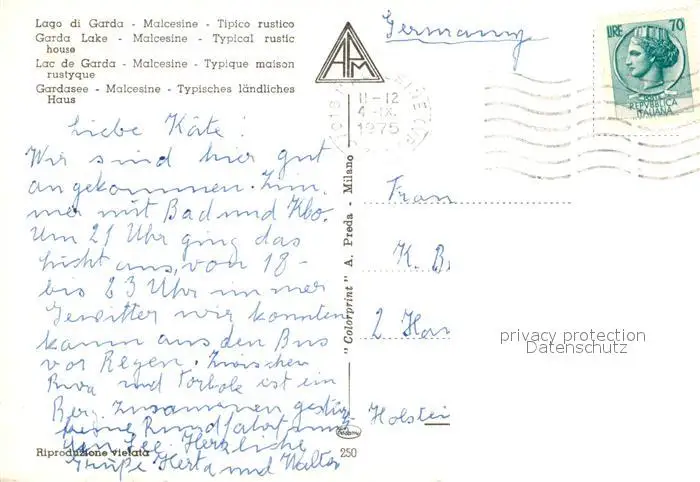 Lago di Garda - Malcesine - Tipico rustico
Garda Lake - Malcesine - Typical rustic
house
Lac de Garda - Malcesine - Typique maison
rustyque
Gardasee - Malcesine - Typisches ländliches
Haus
APM
Germany
LIRE 70
REPUBBLICA
ITALIANA
11-12
4 -IX
1975
Liebe Käte!
Wir sind hier gut
angekommen. Zim,
mer mit Bad und Klo.
Um 21 Uhr ging das
Licht aus, von 18-
bis 23 Uhr immer
Gewitter wir konnten
kaum aus den Bus
vor Regen. Zwischen
Riva und Torbole ist ein
Berg zusammen gestürz
keine Rundfahrt zum
See. Herzliche
Grüße Herta und Walter
Frau
K. B
2 Ham
Holstein
"Colorprint" A. Preda - Milano
Riproduzione vietata
250
privacy protection
Datenschutz